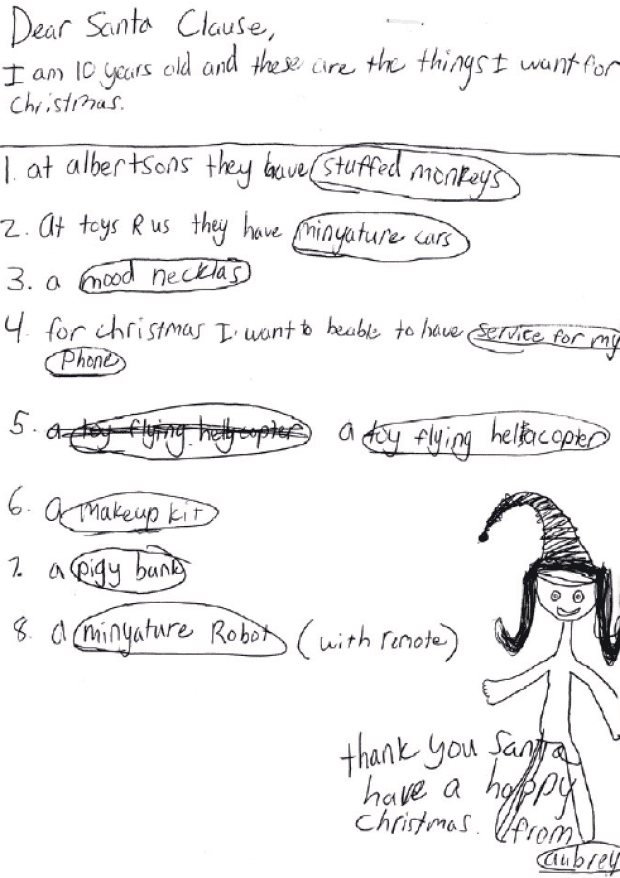 Dear Santa Clause,
I am 10 years old and these are the things I want for
christmas.
1. at albertsons they have stuffed monkeys
2. At toys R us they have minyature cars
3. a mood necklas
4. for christmas I want to beable to have service for my
Phone
5. a toy flying hellycopter a toy flying hellacopter
6. a makeup kit
7. a pigy bank
8. a minyature Robot (with remote)
thank you Santa
have a happy
christmas. from
aubrey